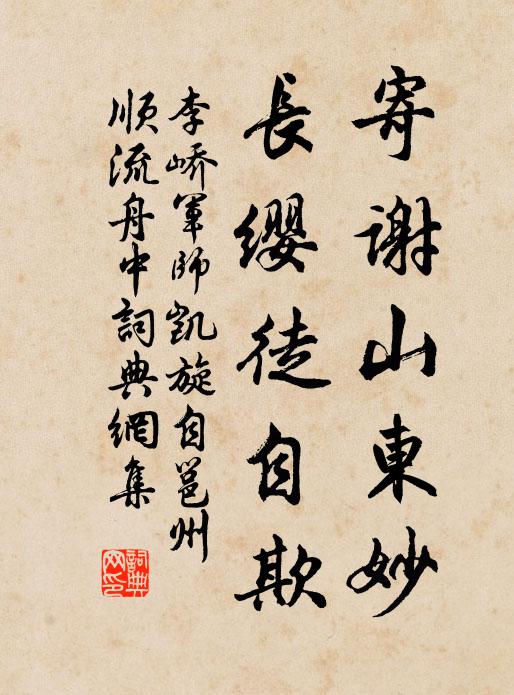 寄謝山東妙
長纓徒自欺
李嶠軍師凱旋自邕州
順流舟中詞典網集
詞典
网印